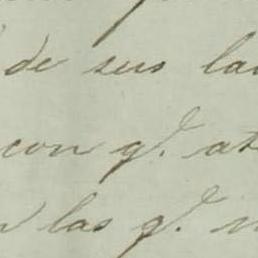 de sus la
con q.e at
las q.e